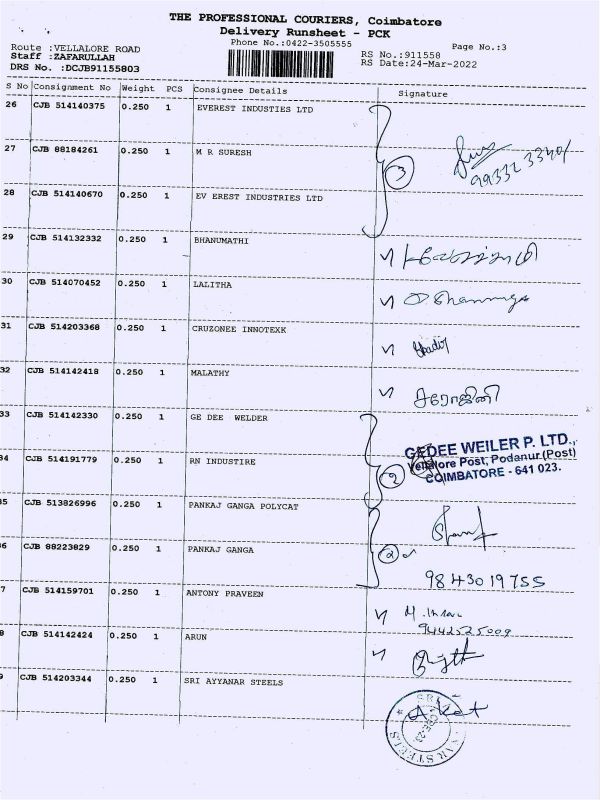 THE PROFESSIONAL COURIERS, Coimbatore
Delivery Runsheet - PCK
Phone No.:0422-3505555
Page No.:3
Route :VELLALORE ROAD
Staff :ZAFARULLAH
DRS No. :DCJB91155803
RS No.:911558
RS Date:24-Mar-2022
S No Consignment No Weight PCS Consignee Details Signature
26 CJB 514140375 0.250 1 EVEREST INDUSTIES LTD
27 CJB 88184261 0.250 1 M R SURESH
3
28 CJB 514140670 0.250 1 EV EREST INDUSTRIES LTD
29 CJB 514132332 0.250 1 BHANUMATHI
30 CJB 514070452 0.250 1 LALITHA
31 CJB 514203368 0.250 1 CRUZONEE INNOTEXK
32 CJB 514142418 0.250 1 MALATHY சரோஜினி
33 CJB 514142330 0.250 1 GE DEE WELDER
GEDEE WEILER P. LTD.,
Vellalore Post, Podanur (Post)
COIMBATORE - 641 023.
34 CJB 514191779 0.250 1 RN INDUSTIRE
2
35 CJB 513826996 0.250 1 PANKAJ GANGA POLYCAT
36 CJB 88223829 0.250 1 PANKAJ GANGA
2
9843019755
7 CJB 514159701 0.250 1 ANTONY PRAVEEN
9442525009
8 CJB 514142424 0.250 1 ARUN
9 CJB 514203344 0.250 1 SRI AYYANAR STEELS